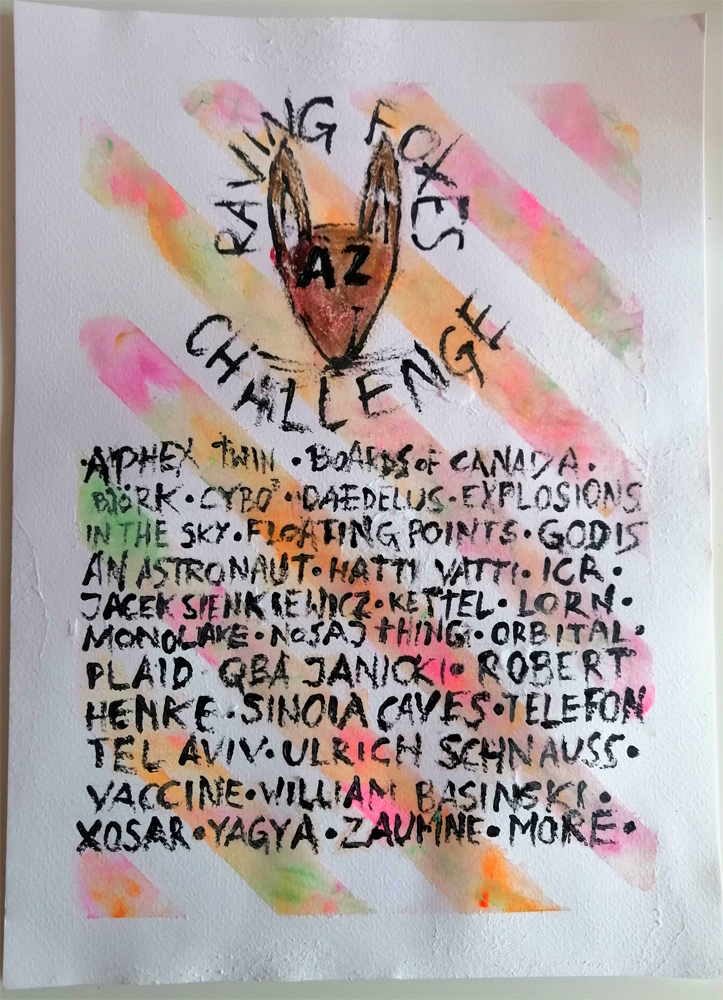 RAVING FOXES
AZ
CHALLENGE
·APHEX TWIN · BOARDS OF CANADA ·
BJÖRK · CYBO · DAEDELUS · EXPLOSIONS
IN THE SKY · FLOATING POINTS · GOD IS
AN ASTRONAUT · HATTI VATTI · ICR ·
JACEK SIENKIEWICZ · KETTEL · LORN ·
MONOLAKE · NOSAJ THING · ORBITAL ·
PLAID QBA JANICKI · ROBERT
HENKE · SINOIA CAVES · TELEFON
TEL AVIV · ULRICH SCHNAUSS ·
VACCINE · WILLIAM BASINSKI ·
XOSAR · YAGYA · ZAUMNE · MORE ·